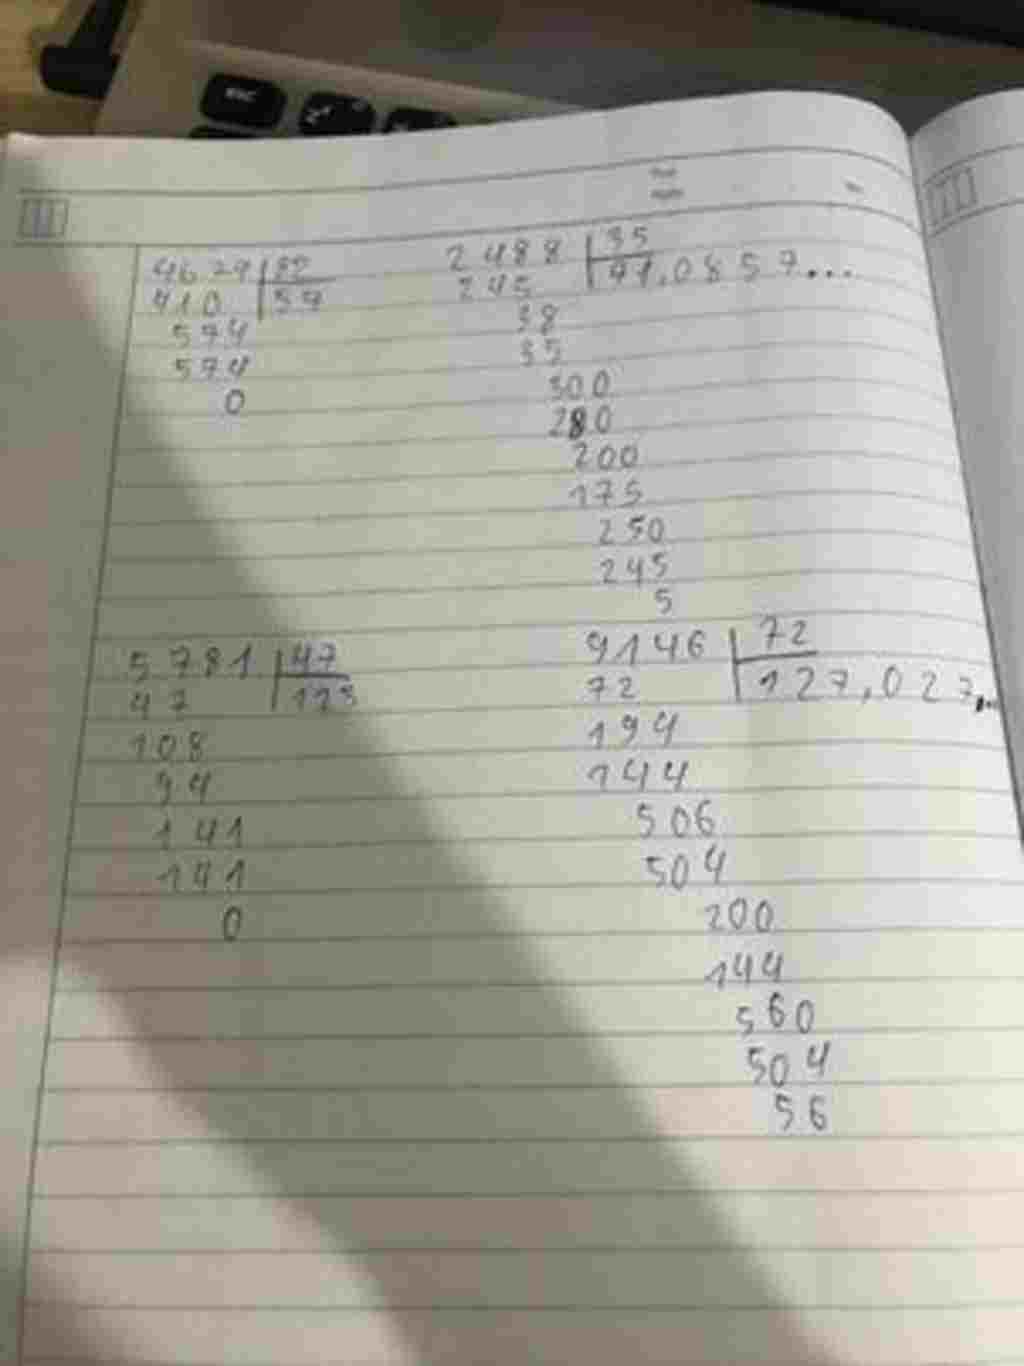 esc
4674 | 82
410 | 57
574
574
0
2488 | 35
245 | 71,0857...
38
35
300
280
200
175
250
245
5
5781 | 47
47 | 123
108
94
141
141
0
9146 | 72
72 | 127,027...
194
144
506
504
200
144
560
504
56